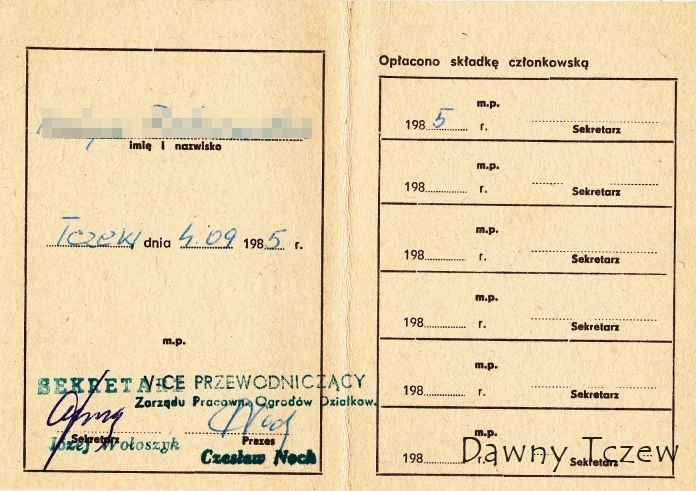 imię i nazwisko
Tczew, dnia 4.09 1985 r.
m.p.
SEKRETARZ
VICE PRZEWODNICZĄCY
Zarządu Pracown. Ogrodów Działkow.
Sekretarz
Prezes
Józef Wołoszyk
Czesław Noch
Opłacono składkę członkowską
m.p.
1985 r.
Sekretarz
m.p.
198 r.
Sekretarz
m.p.
198 r.
Sekretarz
m.p.
198 r.
Sekretarz
m.p.
198 r.
Sekretarz
m.p.
198 r.
Sekretarz
Dawny Tczew